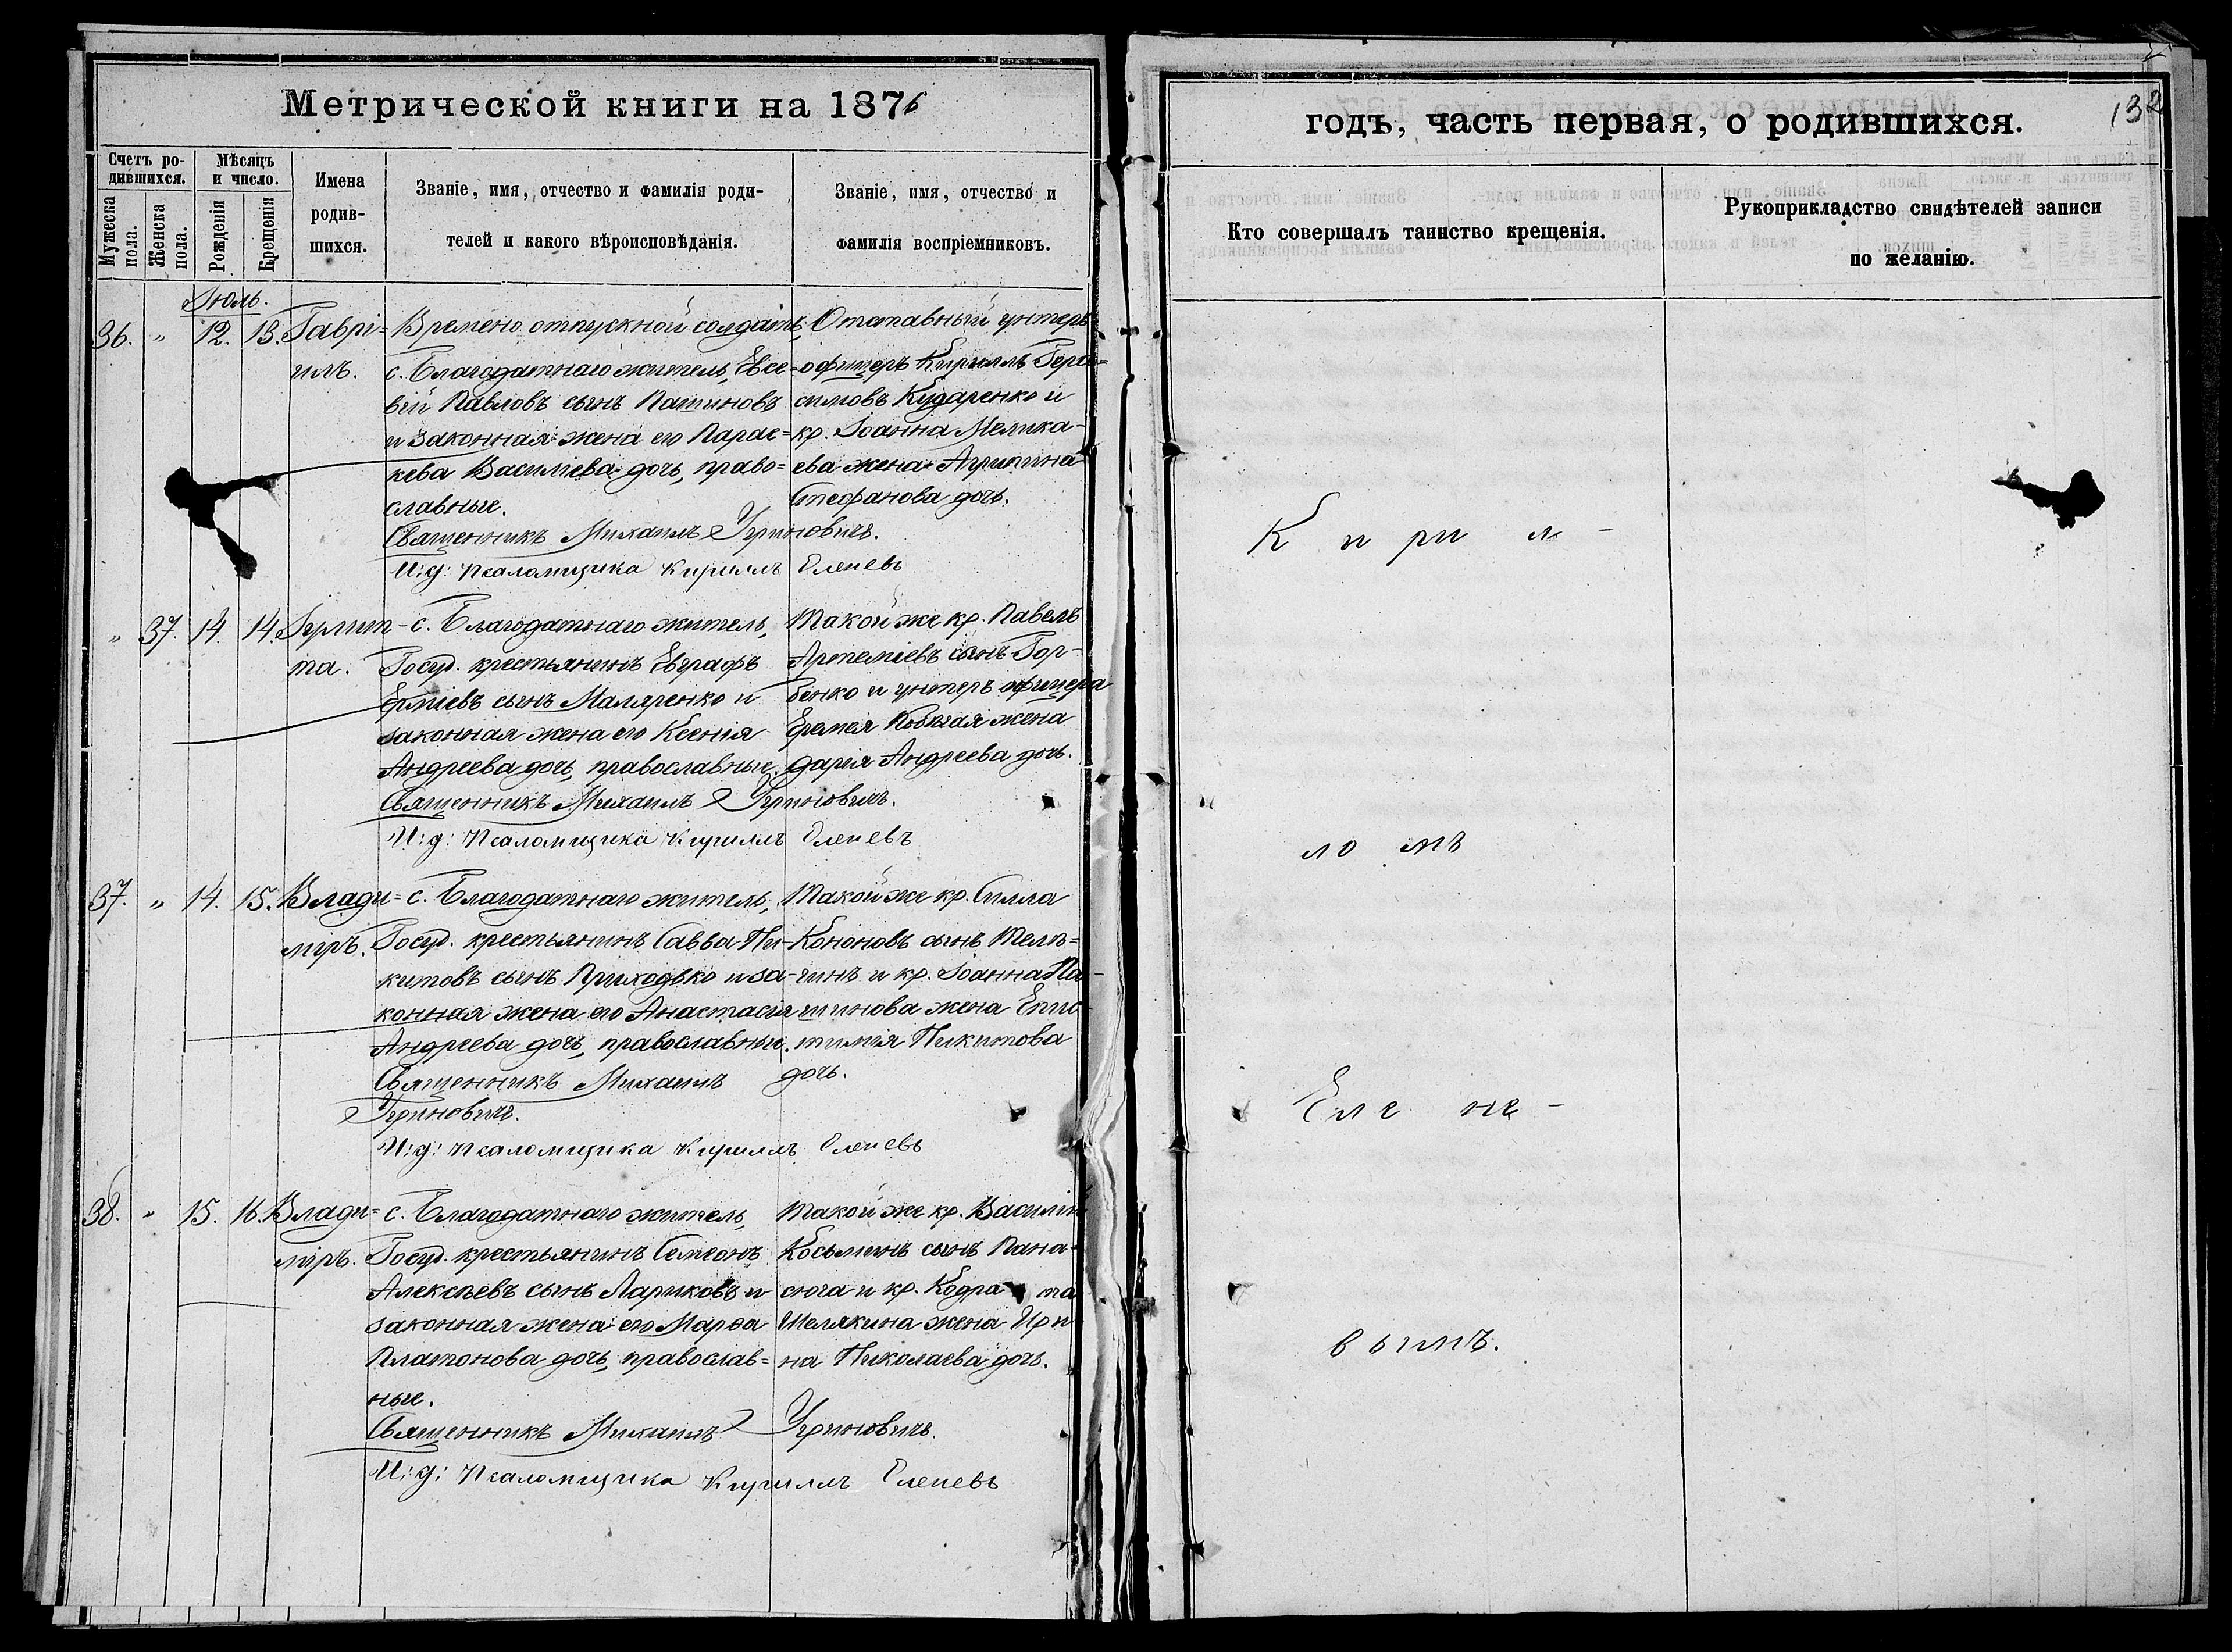 Метрической книги на 1876
годъ, часть первая, о родившихся.
132
Счетъ ро-
дившихся.
Мѣсяцъ
и число.
Мужеска
пола.
Женска
пола.
Рожденія
Крещенія
Имена
родив-
шихся.
Званіе, имя, отчество и фамилія роди-
телей и какого вѣроисповѣданія.
Званіе, имя, отчество и
фамилія воспріемниковъ.
Кто совершалъ таинство крещенія.
Рукоприкладство свидѣтелей записи
по желанію.
Июль.
36. „ 12. 13. Гаврі-
илъ.
Времено отпускной солдатъ,
с. Благодатнаго житель, Евсе-
вій Павловъ сынъ Патиновъ
и законная жена его Парас-
кева Василіева дочь, право-
славные.
Отставный унтеръ
офицеръ Кириллъ Гера-
симовъ Кударенко и
кр. Іоанна Мелика-
ева жена Агрипина
Стефанова дочь.
Священникъ Михаилъ Угриновичъ.
И: д: Псаломщика Кириллъ Еленевъ
„ 37. 14. 14. Іулит-
та.
с. Благодатнаго житель,
Госуд. крестьянинъ Евграфъ
Ермиевъ сынъ Маляренко и
законная жена его Ксенія
Андреева дочь, православные.
Такой же кр. Павелъ
Артеміевъ сынъ Гор-
бенко и унтеръ офицера
Еремея жена
Дарія Андреева дочь.
Священникъ Михаилъ Угриновичъ.
И: д: Псаломщика Кириллъ Еленевъ
37. „ 14. 15. Влади-
міръ.
с. Благодатнаго житель,
Госуд. крестьянинъ Савва Ни-
китовъ сынъ Приходько и за-
конная жена его Анастасія
Андреева дочь, православные.
Такой же кр. Силла
Кононовъ сынъ Меля-
чинъ и кр. Іоанна Па-
шинова жена Епис-
тимія Никитова
дочь.
Священникъ Михаилъ
Угриновичъ.
И: д: Псаломщика Кириллъ Еленевъ
38. „ 15. 16. Влади-
міръ.
с. Благодатнаго житель,
Госуд. крестьянинъ Симеонъ
Алексѣевъ сынъ Лариковъ и
законная жена его Марѳа
Платонова дочь, православ-
ные.
Такой же кр. Василій
Косьминъ сынъ Пана-
сюга и кр. Кодрата
Шелякина жена Ири-
на Николаева дочь.
Священникъ Михаилъ Угриновичъ.
И: д: Псаломщика Кириллъ Еленевъ
Кирил-
ломъ
Елене-
вымъ.